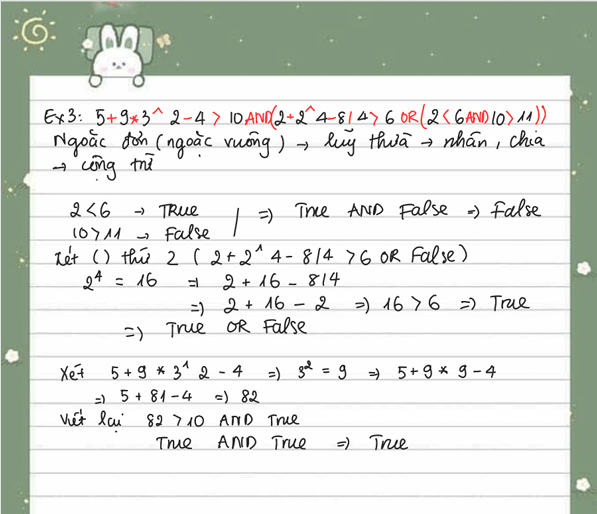 Ex3: 5+9*3^ 2-4 > 10 AND(2+2^4-8/4 > 6 OR(2<6AND10>11))
Ngoặc đơn (ngoặc vuông) → luỹ thừa → nhân, chia
→ cộng trừ
2<6 → TRUE | => True AND False => False
10>11 → False
Xét () thứ 2 ( 2+2^ 4 - 8/4 >6 OR False)
2⁴ = 16 => 2 + 16 - 8/4
=> 2 + 16 - 2 => 16 > 6 => True
=> True OR False
Xét 5 + 9 * 3^ 2 - 4 => 3² = 9 => 5 + 9 * 9 - 4
=> 5 + 81 - 4 => 82
Viết lại 82 > 10 AND True
True AND True => True